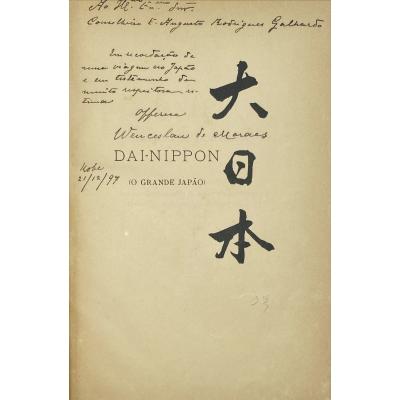 Ao Ill.mo Ex.mo Snr.
Conselheiro E. Augusto Rodrigues Galhardo
Em recordação de
uma viagem no Japão
e em testemunho de
muito respeitosa es-
tima
Offerece
Wenceslau de Moraes
DAI-NIPPON
(O GRANDE JAPÃO)
Kobe
21/12/97
大日本